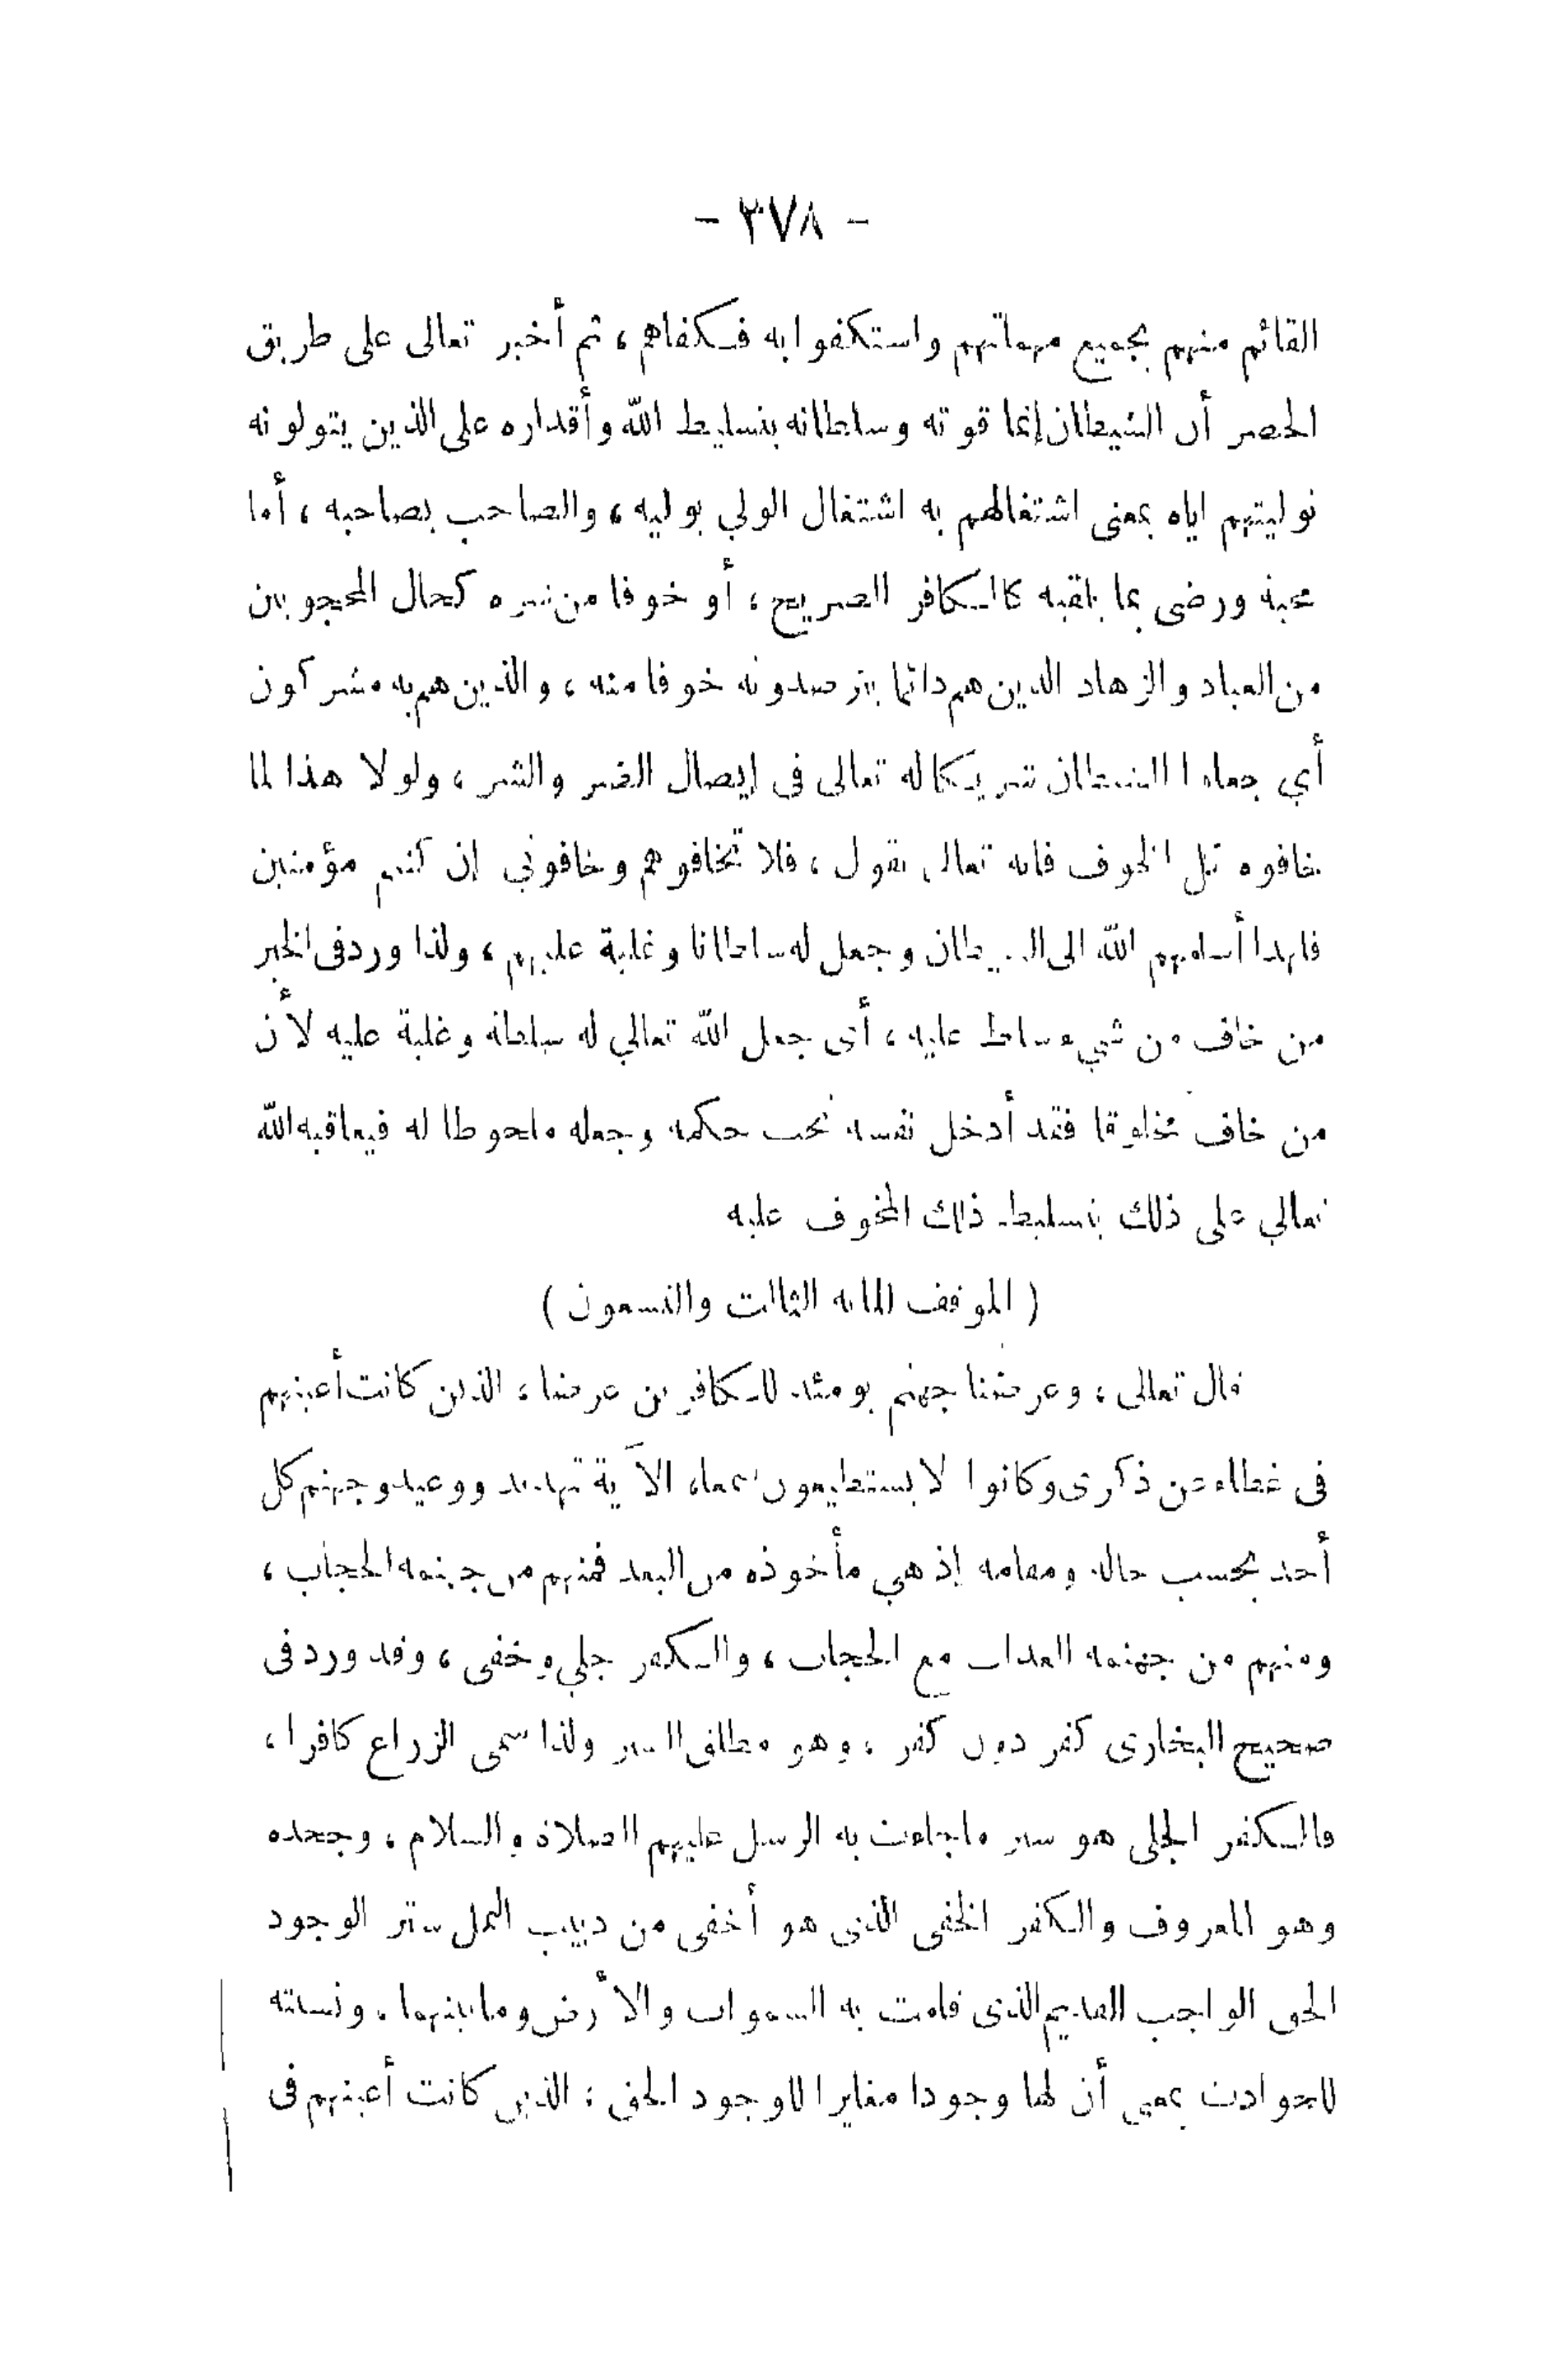 - ٣٧٨ -
القائم منهم بجميع مهماتهم واستكفوا به فكفاهم ، ثم أخبر تعالى على طريق
الحصر أن الشيطان إنما قوته وسلطانه بتسليط الله وأقداره على الذين يتولونه
توليتهم اياه بمعنى اشتغالهم به اشتغال الولي بوليه ، والصاحب بصاحبه ، أما
محبة ورضى بما يلقيه كالكافر الصريح ، أو خوفا من شره كحال المحجوبين
من العباد والزهاد الذين هم دائما يترصدونه خوفا منه ، والذين هم به مشركون
أي جعلوا الشيطان شريكا له تعالى فى إيصال الضر والشر ، ولولا هذا لما
خافوه الخوف فانه تعالى يقول ، فلا تخافوهم وخافوني إن كنتم مؤمنين
فلهذا أسلمهم الله الى الشيطان وجعل له سلطانا وغلبة عليهم ، ولذا ورد فى الخبر
من خاف من شيء سلط عليه ، أى جعل الله تعالي له سلطة وغلبة عليه لأن
من خاف مخلوقا فقد أدخل نفسه تحت حكمه وجعله ملحوظا له فيعاقبه الله
تعالي على ذلك بتسليط ذلك المخوف عليه
( الموقف المائه الثالث والتسعون )
قال تعالى ، وعرضنا جهنم يومئذ للكافرين عرضا ، الذين كانت أعينهم
فى غطاء عن ذكرى وكانوا لا يستطيعون سمعا، الآية تهديد ووعيد وجهنم كل
أحد بحسب حاله ومقامه إذ هي مأخوذه من البعد فمنهم من جهنمه الحجاب ،
ومنهم من جهنمه العذاب مع الحجاب ، والكفر جلي وخفى ، وقد ورد فى
صحيح البخارى كفر دون كفر ، وهو مطلق الستر ولذا سمى الزراع كافرا ،
فالكفر الجلى هو ستر ماجاءت به الرسل عليهم الصلاة والسلام ، وجحده
وهو المعروف والكفر الخفى الذى هو أخفى من دبيب النمل ستر الوجود
الحق الواجب القديم الذى قامت به السموات والأرض وما بينهما ، ونسبته
للحوادث بمعنى أن لها وجودا مغايرا للوجود الحق ؛ الذين كانت أعينهم فى